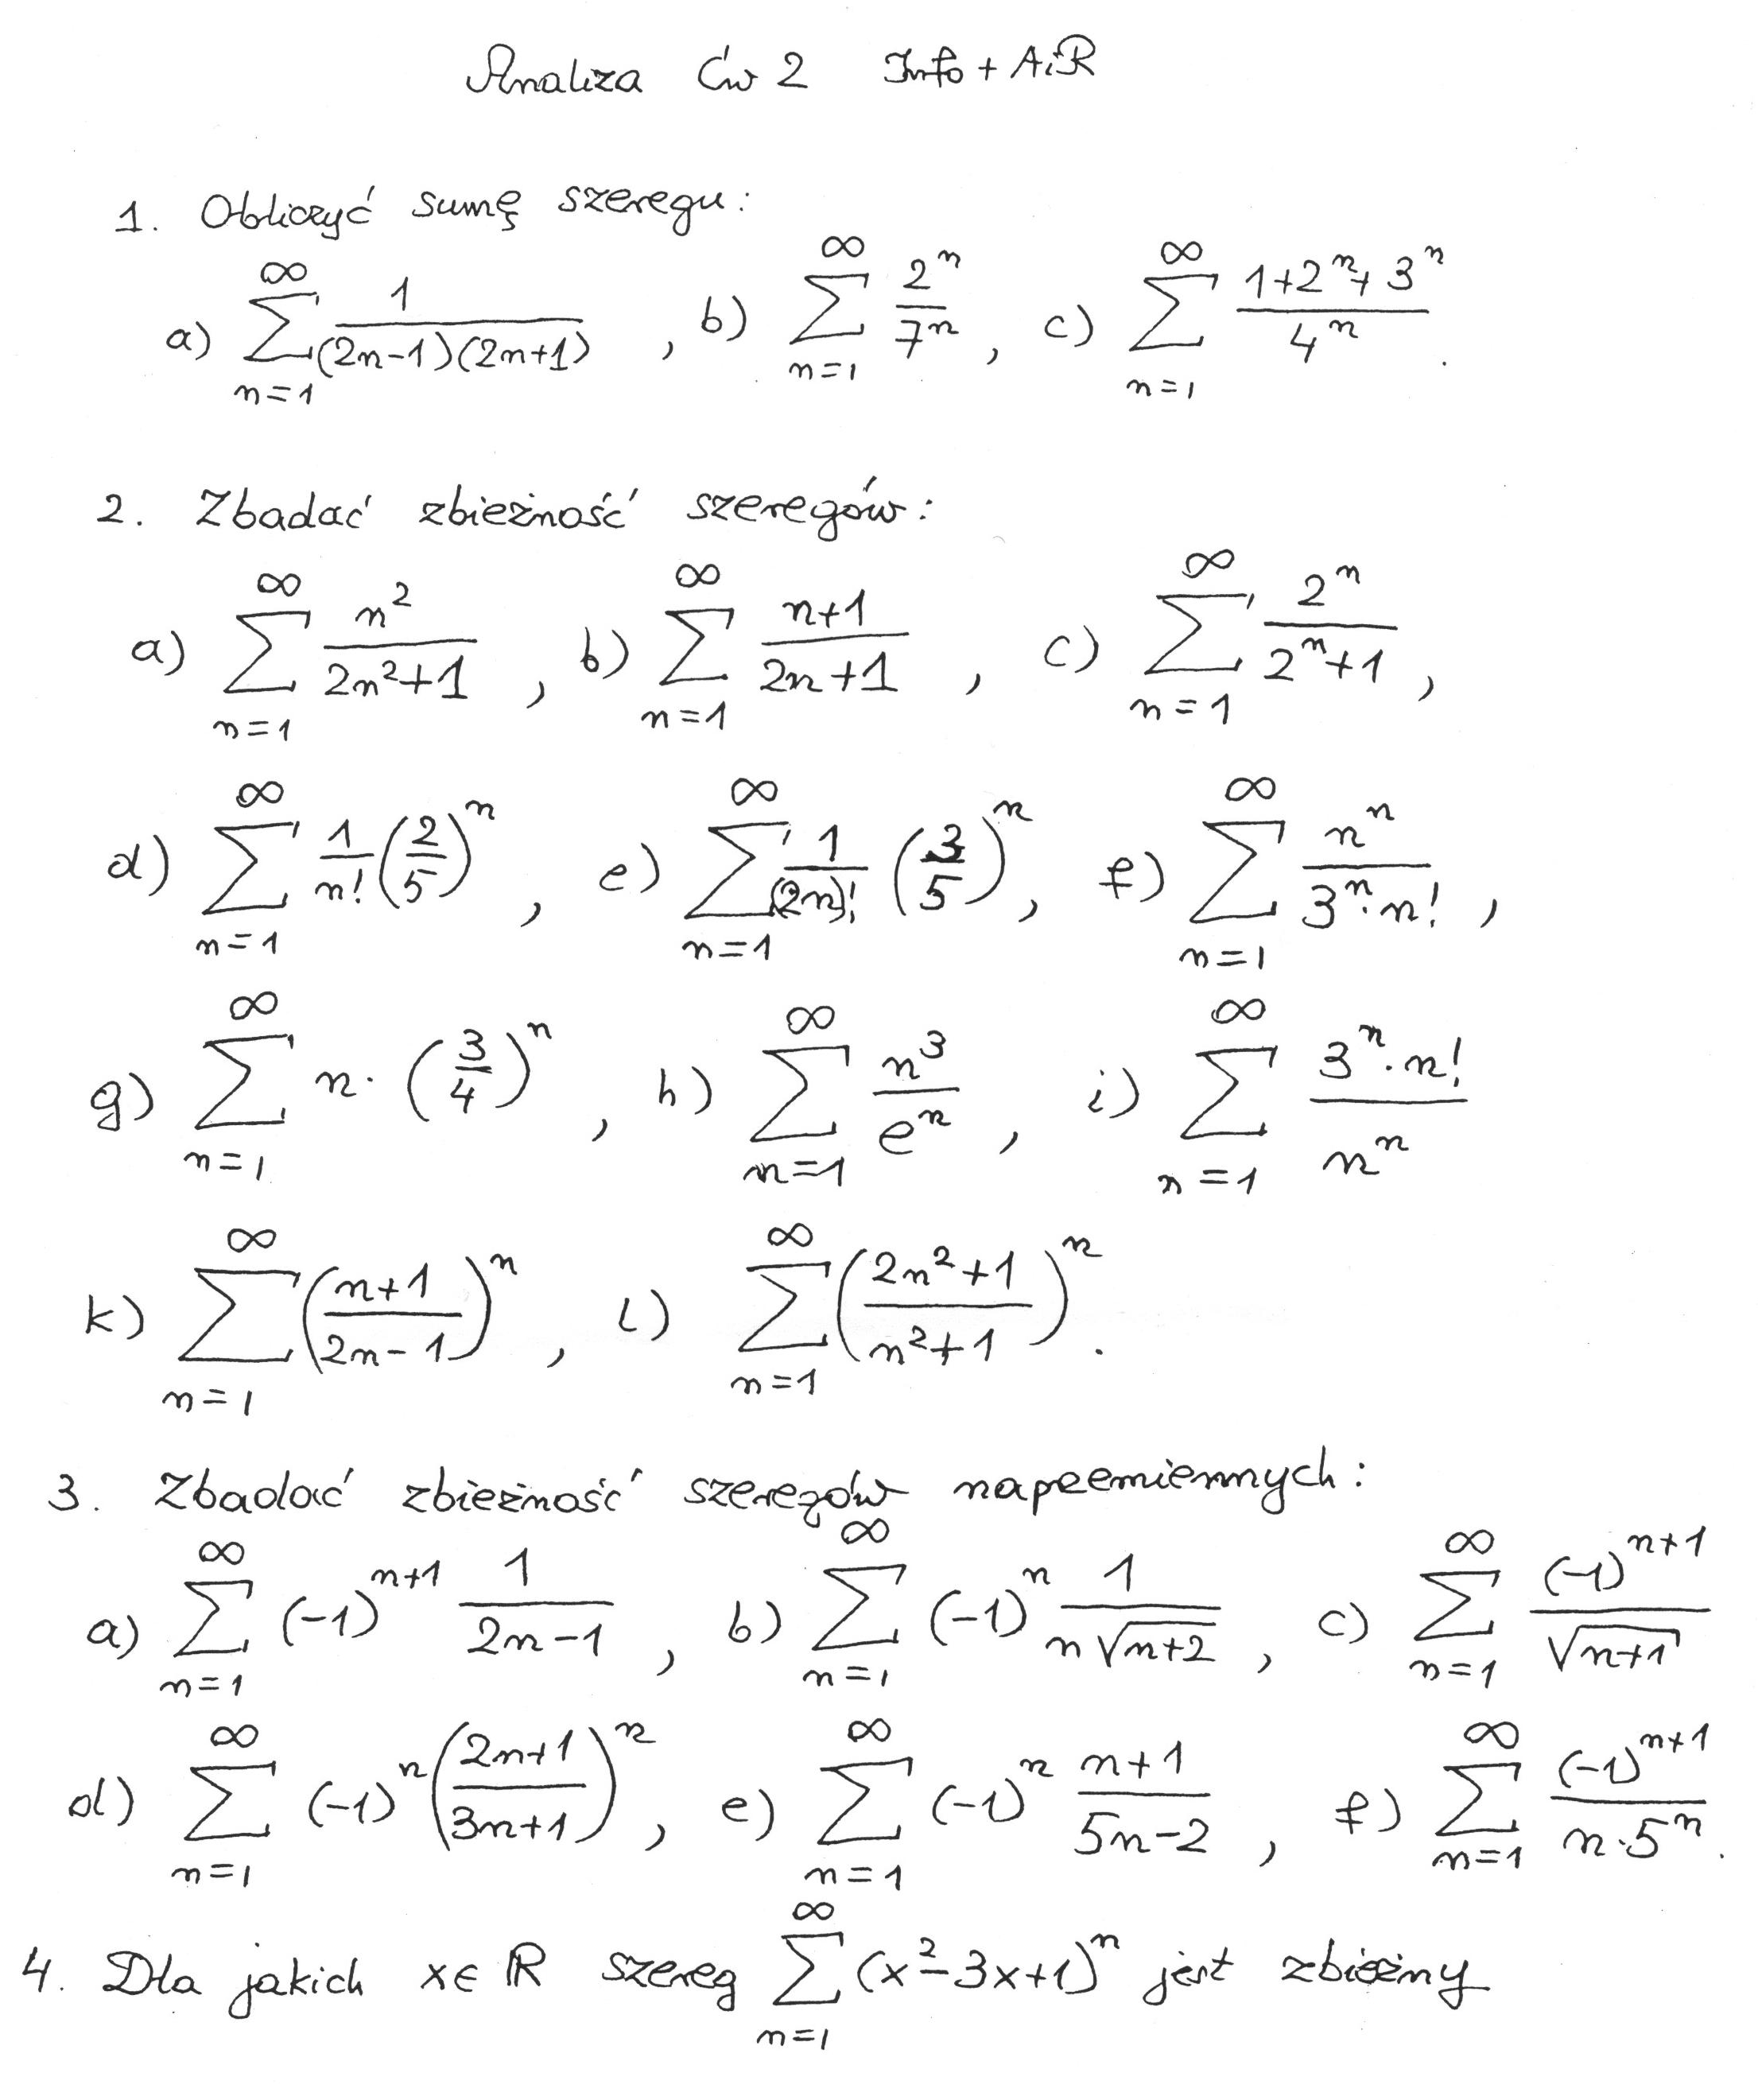 Analiza Ćw 2 Info + AiR
1. Obliczyć sumę szeregu:
a) \sum_{n=1}^{\infty} \frac{1}{(2n-1)(2n+1)} , b) \sum_{n=1}^{\infty} \frac{2^n}{7^n} , c) \sum_{n=1}^{\infty} \frac{1+2^n+3^n}{4^n} .
2. Zbadać zbieżność szeregów:
a) \sum_{n=1}^{\infty} \frac{n^2}{2n^2+1} , b) \sum_{n=1}^{\infty} \frac{n+1}{2n+1} , c) \sum_{n=1}^{\infty} \frac{2^n}{2^n+1} ,
d) \sum_{n=1}^{\infty} \frac{1}{n!} \left(\frac{2}{5}\right)^n , e) \sum_{n=1}^{\infty} \frac{1}{(2n)!} \left(\frac{3}{5}\right)^n , f) \sum_{n=1}^{\infty} \frac{n^n}{3^n \cdot n!} ,
g) \sum_{n=1}^{\infty} n \cdot \left(\frac{3}{4}\right)^n , h) \sum_{n=1}^{\infty} \frac{n^3}{e^n} , i) \sum_{n=1}^{\infty} \frac{3^n \cdot n!}{n^n}
k) \sum_{n=1}^{\infty} \left(\frac{n+1}{2n-1}\right)^n , l) \sum_{n=1}^{\infty} \left(\frac{2n^2+1}{n^2+1}\right)^n .
3. Zbadać zbieżność szeregów naprzemiennych:
a) \sum_{n=1}^{\infty} (-1)^{n+1} \frac{1}{2n-1} , b) \sum_{n=1}^{\infty} (-1)^n \frac{1}{n\sqrt{n+2}} , c) \sum_{n=1}^{\infty} \frac{(-1)^{n+1}}{\sqrt{n+1}}
d) \sum_{n=1}^{\infty} (-1)^n \left(\frac{2n+1}{3n+1}\right)^n , e) \sum_{n=1}^{\infty} (-1)^n \frac{n+1}{5n-2} , f) \sum_{n=1}^{\infty} \frac{(-1)^{n+1}}{n \cdot 5^n} .
4. Dla jakich x∈ℝ szereg \sum_{n=1}^{\infty} (x^2-3x+1)^n jest zbieżny